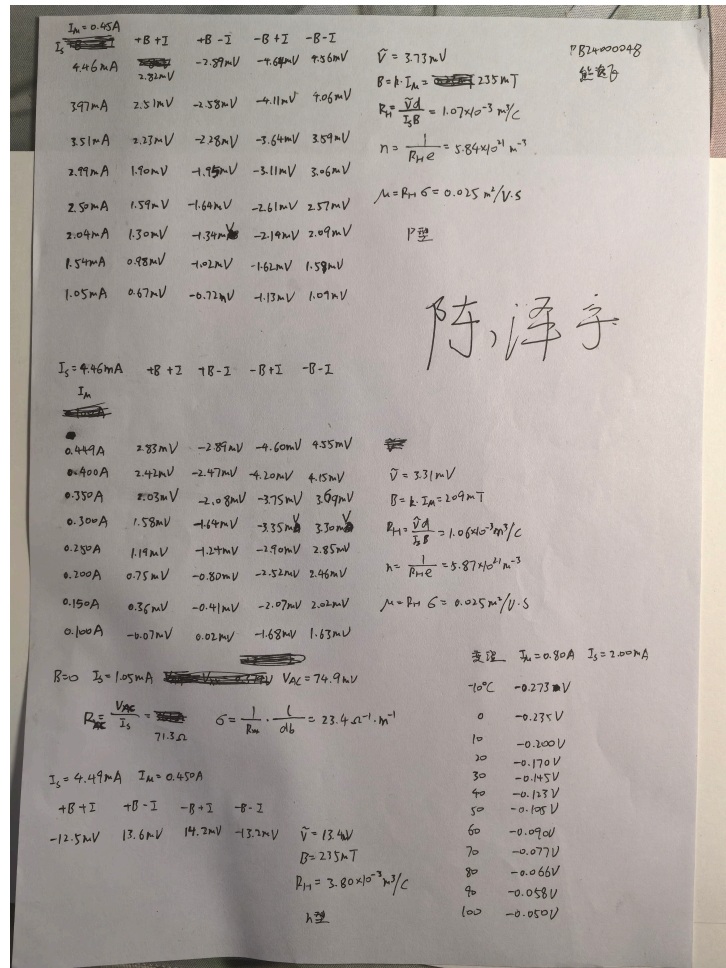 I_M = 0.45A
I_S +B+I +B-I -B+I -B-I
4.46mA 2.82mV -2.89mV -4.64mV 4.56mV
3.97mA 2.51mV -2.58mV -4.11mV 4.06mV
3.51mA 2.23mV -2.28mV -3.64mV 3.59mV
2.99mA 1.90mV -1.95mV -3.11mV 3.06mV
2.50mA 1.59mV -1.64mV -2.61mV 2.57mV
2.04mA 1.30mV -1.34mV -2.14mV 2.09mV
1.54mA 0.98mV -1.02mV -1.62mV 1.58mV
1.05mA 0.67mV -0.72mV -1.13mV 1.09mV
Ṽ = 3.73mV
B = k·I_M = 235mT
R_H = Ṽd/I_SB = 1.07×10⁻³ m³/C
n = 1/R_He = 5.84×10²¹ m⁻³
μ = R_H σ = 0.025 m²/V·S
P型
PB24000048
陈泽宇
I_S = 4.46mA +B+I +B-I -B+I -B-I
I_M
0.449A 2.83mV -2.89mV -4.60mV 4.55mV
0.400A 2.42mV -2.47mV -4.20mV 4.15mV
0.350A 2.03mV -2.08mV -3.75mV 3.69mV
0.300A 1.58mV -1.64mV -3.35mV 3.30mV
0.250A 1.19mV -1.24mV -2.90mV 2.85mV
0.200A 0.75mV -0.80mV -2.52mV 2.46mV
0.150A 0.36mV -0.41mV -2.07mV 2.02mV
0.100A -0.07mV 0.02mV -1.68mV 1.63mV
Ṽ = 3.31mV
B = k·I_M = 209mT
R_H = Ṽd/I_SB = 1.06×10⁻³ m³/C
n = 1/R_He = 5.87×10²¹ m⁻³
μ = R_H σ = 0.025 m²/V·S
B=0 I_S = 1.05mA V_AC = 74.9mV
R_AC = V_AC/I_S = 71.3Ω σ = 1/R_AC · l/db = 23.4 Ω⁻¹·m⁻¹
I_S = 4.49mA I_M = 0.450A
+B+I +B-I -B+I -B-I
-12.5mV 13.6mV 14.2mV -13.2mV
Ṽ = 13.4V
B = 235mT
R_H = 3.80×10⁻³ m³/C
n型
变温 I_M = 0.80A I_S = 2.00mA
-10℃ -0.273V
0 -0.235V
10 -0.200V
20 -0.170V
30 -0.145V
40 -0.123V
50 -0.105V
60 -0.090V
70 -0.077V
80 -0.066V
90 -0.058V
100 -0.050V